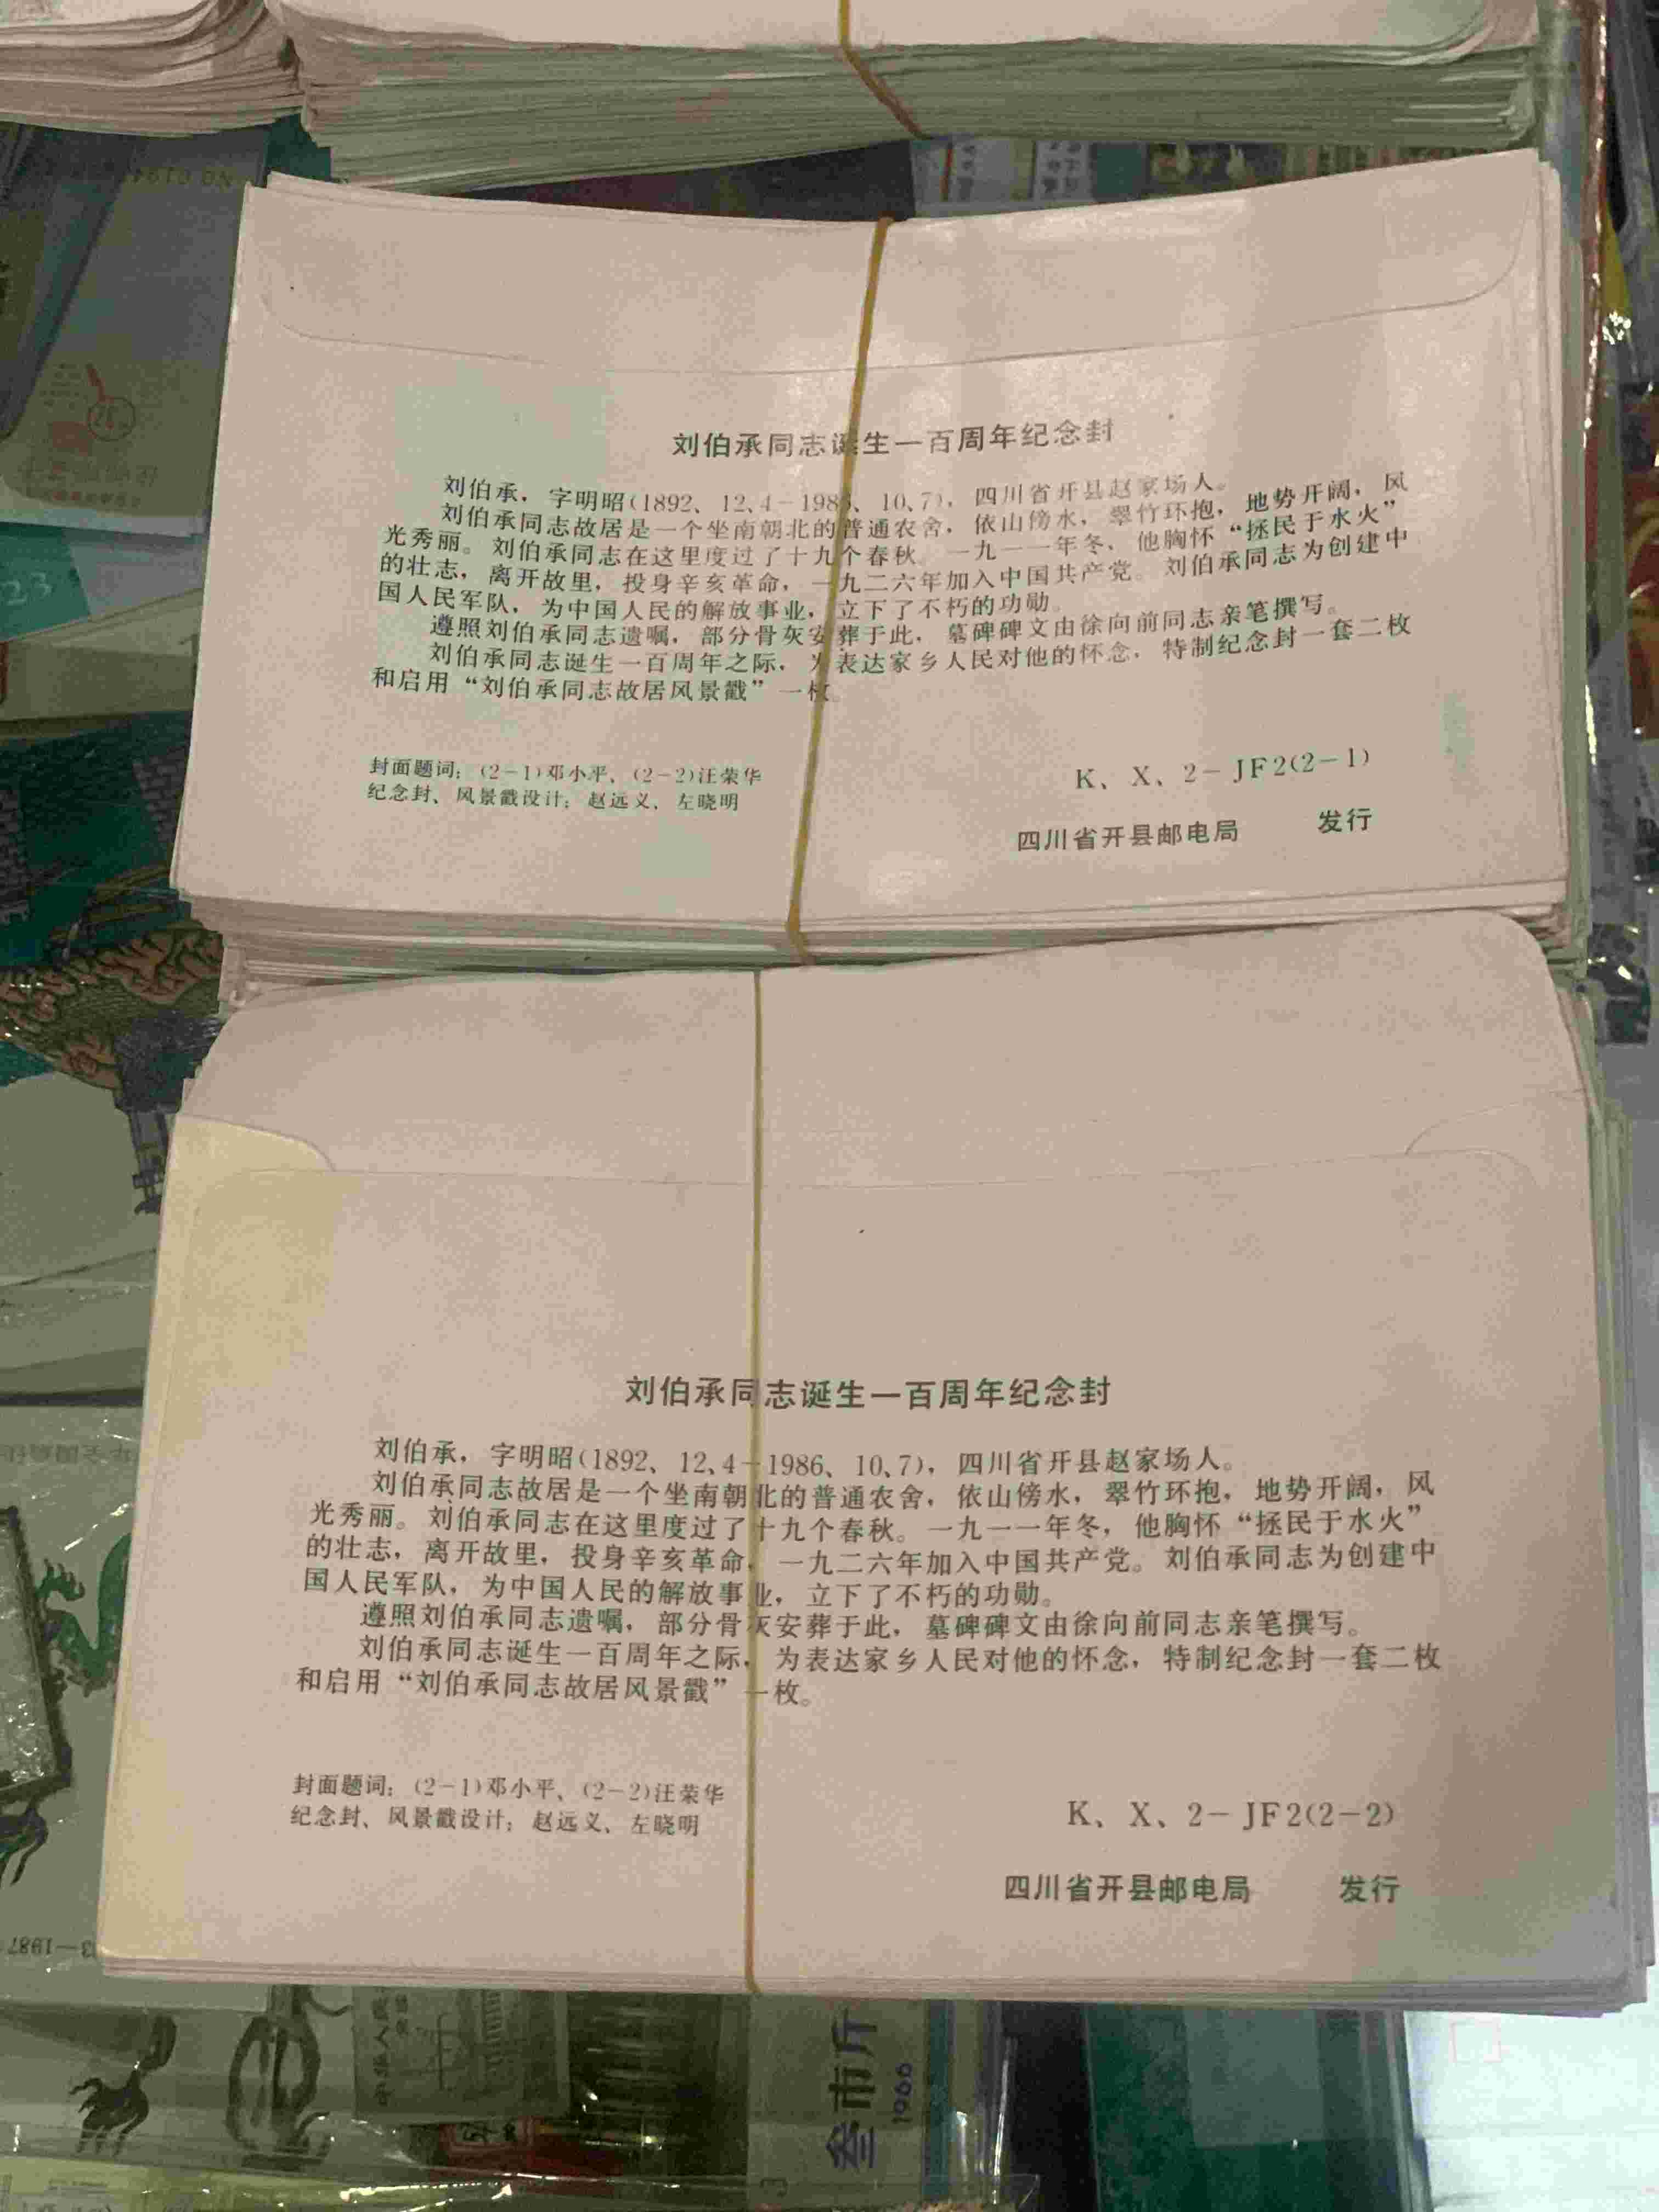 刘伯承同志诞生一百周年纪念封
刘伯承，字明昭(1892、12、4－1986、10、7)，四川省开县赵家场人。
刘伯承同志故居是一个坐南朝北的普通农舍，依山傍水，翠竹环抱，地势开阔，风
光秀丽。刘伯承同志在这里度过了十九个春秋。一九一一年冬，他胸怀“拯民于水火”
的壮志，离开故里，投身辛亥革命，一九二六年加入中国共产党。刘伯承同志为创建中
国人民军队，为中国人民的解放事业，立下了不朽的功勋。
遵照刘伯承同志遗嘱，部分骨灰安葬于此，墓碑碑文由徐向前同志亲笔撰写。
刘伯承同志诞生一百周年之际，为表达家乡人民对他的怀念，特制纪念封一套二枚
和启用“刘伯承同志故居风景戳”一枚
封面题词：(2－1)邓小平、(2－2)汪荣华
纪念封、风景戳设计：赵远义、左晓明
K、X、2－JF2(2－1)
四川省开县邮电局 发行
刘伯承同志诞生一百周年纪念封
刘伯承，字明昭(1892、12、4－1986、10、7)，四川省开县赵家场人。
刘伯承同志故居是一个坐南朝北的普通农舍，依山傍水，翠竹环抱，地势开阔，风
光秀丽。刘伯承同志在这里度过了十九个春秋。一九一一年冬，他胸怀“拯民于水火”
的壮志，离开故里，投身辛亥革命，一九二六年加入中国共产党。刘伯承同志为创建中
国人民军队，为中国人民的解放事业，立下了不朽的功勋。
遵照刘伯承同志遗嘱，部分骨灰安葬于此，墓碑碑文由徐向前同志亲笔撰写。
刘伯承同志诞生一百周年之际，为表达家乡人民对他的怀念，特制纪念封一套二枚
和启用“刘伯承同志故居风景戳”一枚。
封面题词：(2－1)邓小平、(2－2)汪荣华
纪念封、风景戳设计：赵远义、左晓明
K、X、2－JF2(2－2)
四川省开县邮电局 发行
叁市斤
1966